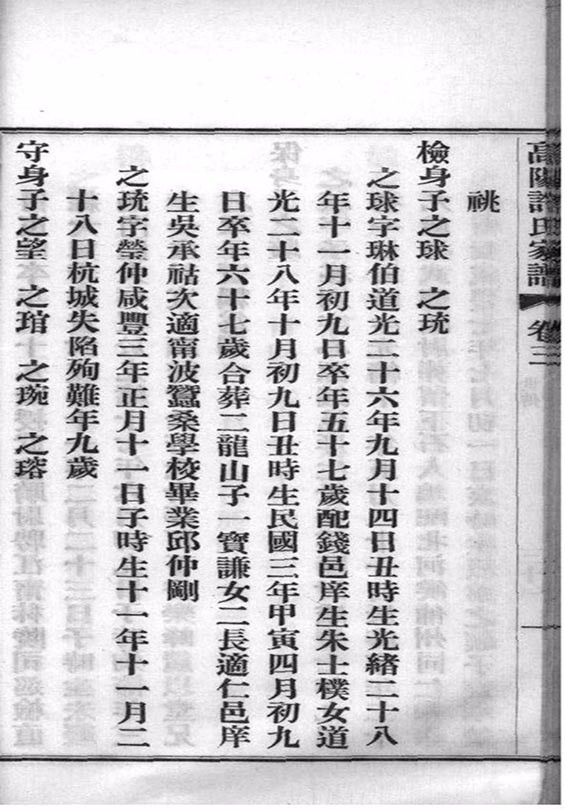 高陽許氏家譜 卷三
祧
檢身子之球 之琉
之球字琳伯道光二十六年九月十四日丑時生光緒二十八
年十一月初九日卒年五十七歲配錢邑庠生朱士樸女道
光二十八年十月初九日丑時生民國三年甲寅四月初九
日卒年六十七歲合葬二龍山子一寶謙女二長適仁邑庠
生吳承祜次適甯波蠶桑學校畢業邱仲剛
之琉字瑩仲咸豐三年正月十一日子時生十一年十一月二
十八日杭城失陷殉難年九歲
守身子之望 之琯 之琬 之瑢